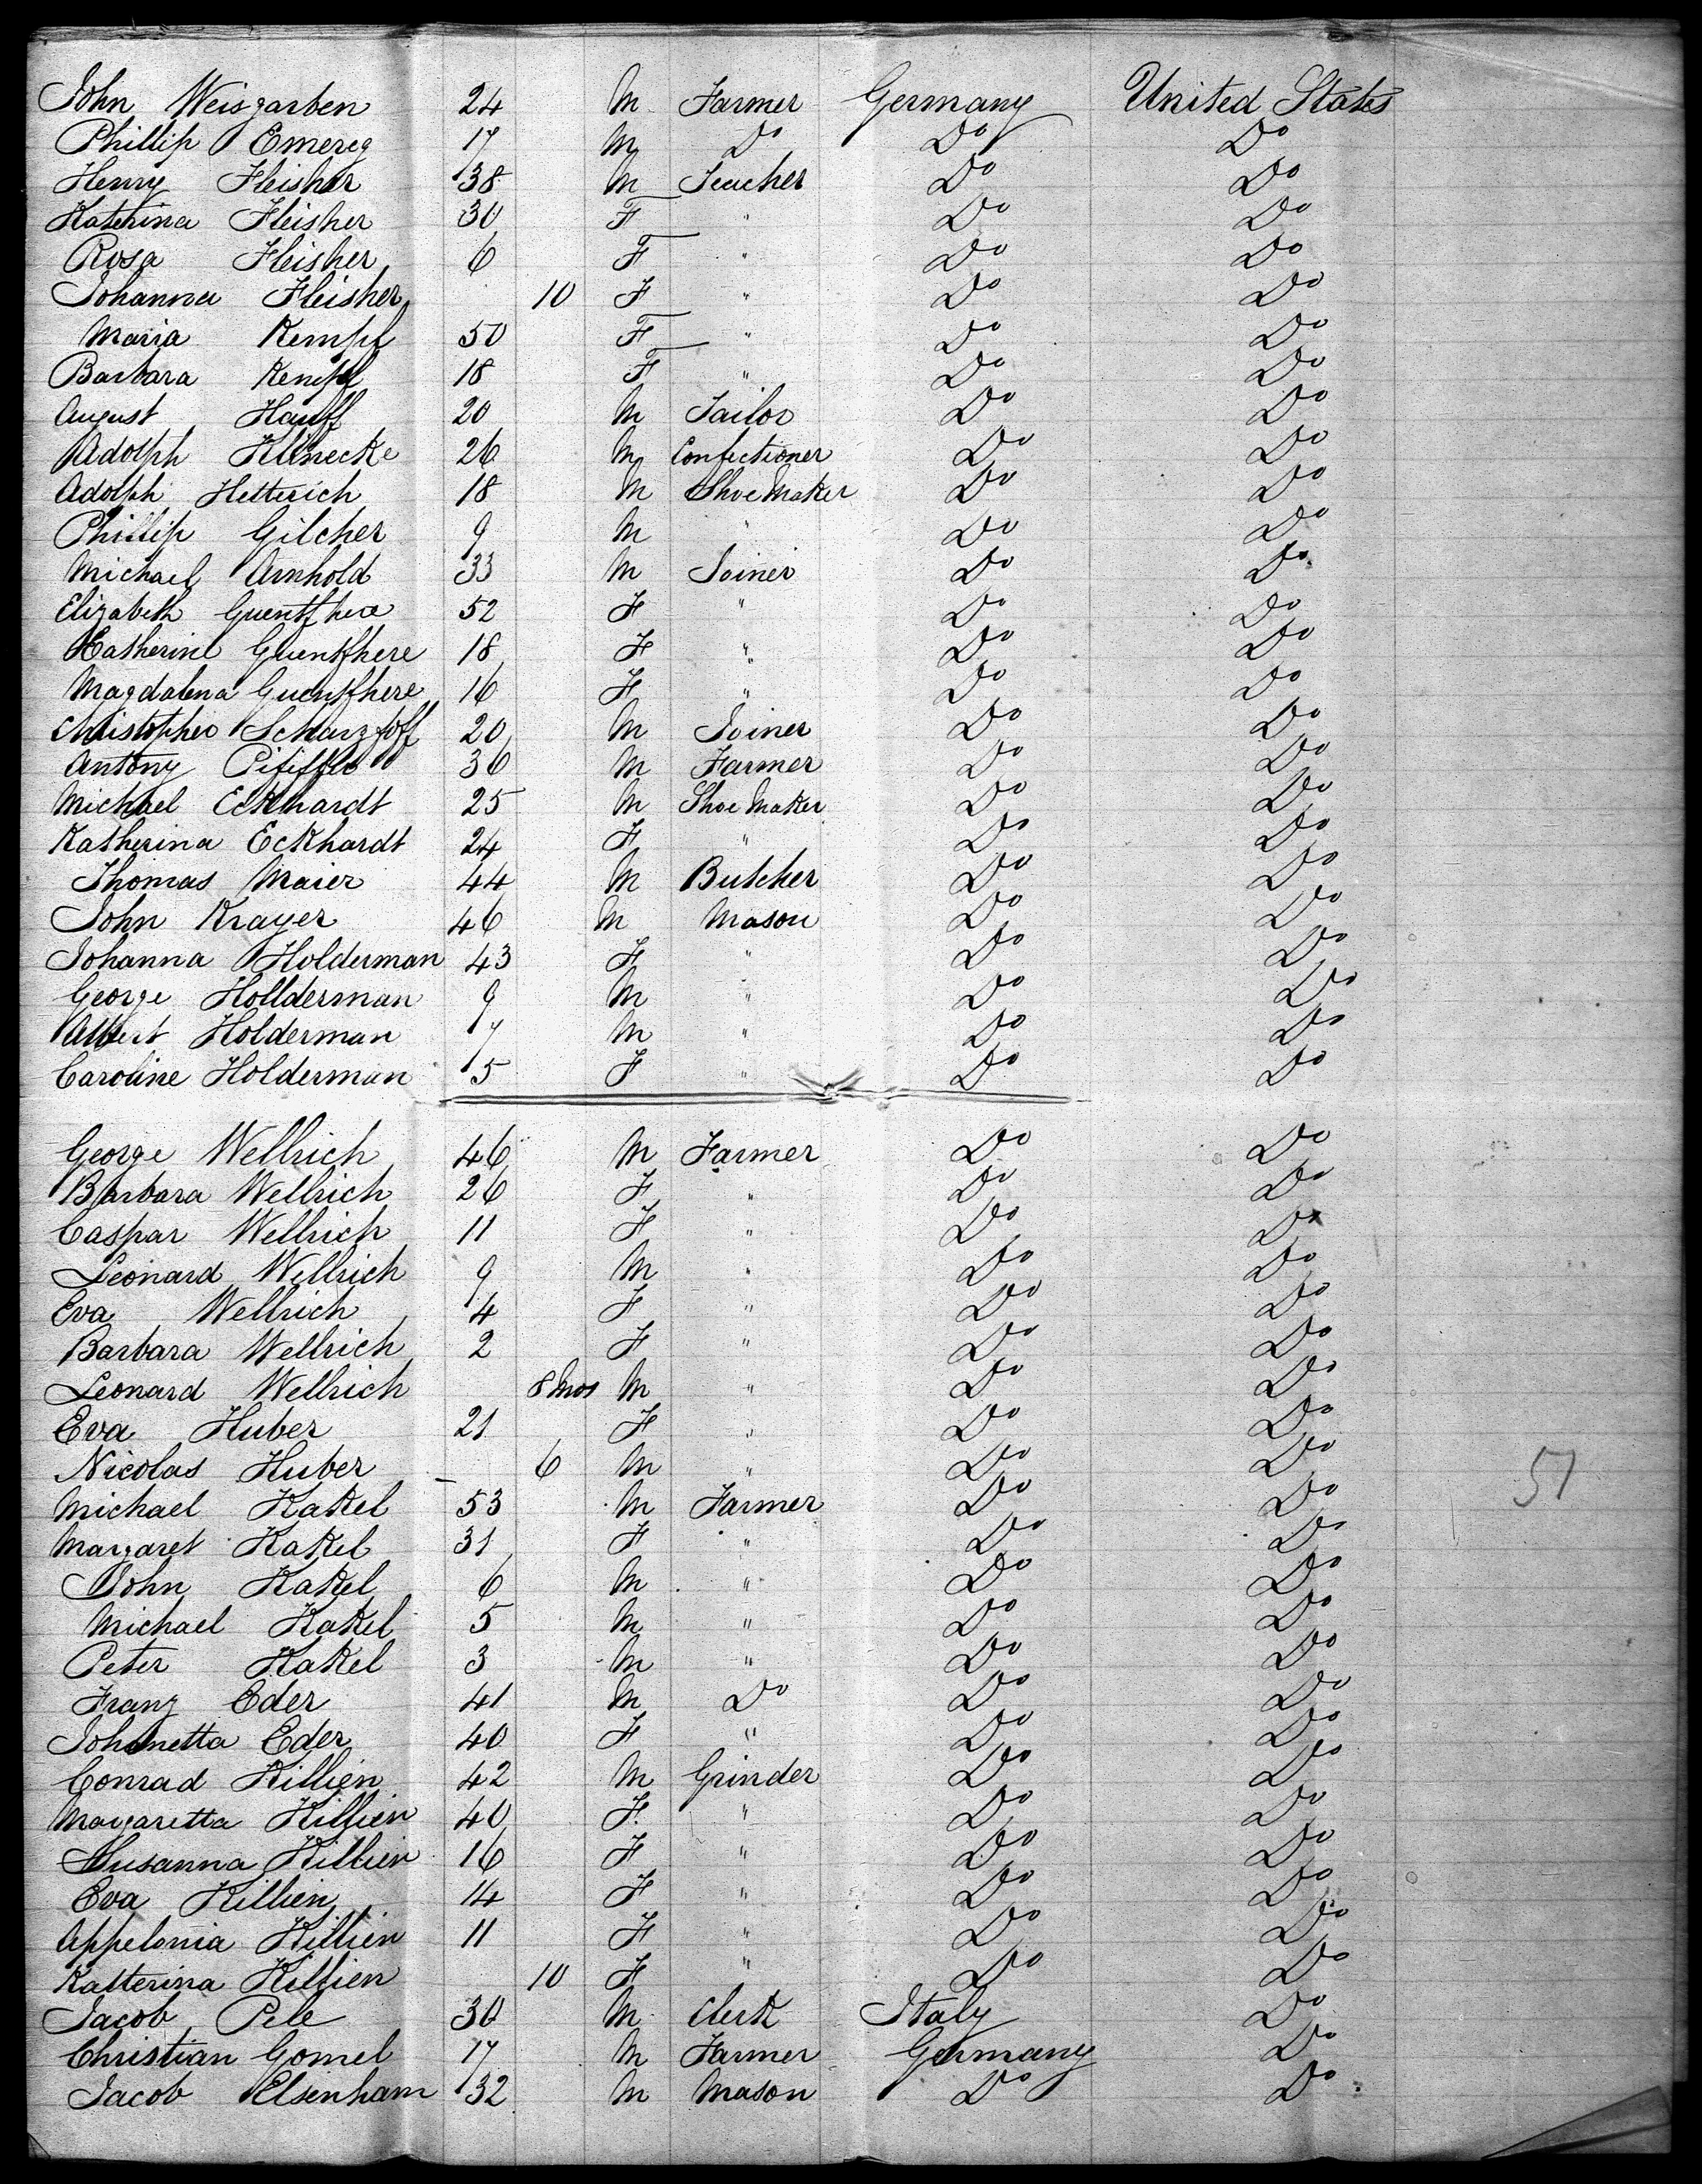 John Weisgarben 24 M Farmer Germany United States
Phillip Emereg 17 M Do Do Do
Henry Fleisher 38 M Teacher Do Do
Katerina Fleisher 30 F " Do Do
Rosa Fleisher 6 F " Do Do
Johanna Fleisher 10 F " Do Do
Maria Kempf 50 F " Do Do
Barbara Kempf 18 F " Do Do
August Hauff 20 M Tailor Do Do
Adolph 26 M Confectioner Do Do
Adolph Hetterich 18 M Shoe Maker Do Do
Phillip Gilcher 9 M " Do Do
Michael Arnhold 33 M Joiner Do Do
Elizabeth 52 F " Do Do
Katherine Guenthere 18 F " Do Do
Magdalena Guenthere 16 F " Do Do
Christopher 20 M Joiner Do Do
Antony 36 M Farmer Do Do
Michael Eckhardt 25 M Shoe Maker Do Do
Katherina Eckhardt 24 F " Do Do
Thomas Maier 44 M Butcher Do Do
John Krayer 46 M Mason Do Do
Johanna Holderman 43 F " Do Do
George Hollderman 9 M " Do Do
Albert Holderman 7 M " Do Do
Caroline Holderman 5 F " Do Do
George Wellrich 46 M Farmer Do Do
Barbara Wellrich 26 F " Do Do
Caspar Wellrich 11 F " Do Do
Leonard Wellrich 9 M " Do Do
Eva Wellrich 4 F " Do Do
Barbara Wellrich 2 F " Do Do
Leonard Wellrich 8 Mos M " Do Do
Eva Huber 21 F " Do Do
Nicolas Huber 6 M " Do Do
Michael Kakel 53 M Farmer Do Do
51
Margaret Kakel 31 F " Do Do
John Kakel 6 M " Do Do
Michael Kakel 5 M " Do Do
Peter Kakel 3 M " Do Do
Franz Eder 41 M Do Do Do
Johanetta Eder 40 F " Do Do
Conrad Killien 42 M Grinder Do Do
Margaretta Killien 40 F " Do Do
Susanna Killien 16 F " Do Do
Eva Killien 14 F " Do Do
Appelonia Killien 11 F " Do Do
Katterina Killien 10 F " Do Do
Jacob Pele 30 M Clerk Italy Do
Christian Gomel 17 M Farmer Germany Do
Jacob Elsenham 32 M Mason Do Do